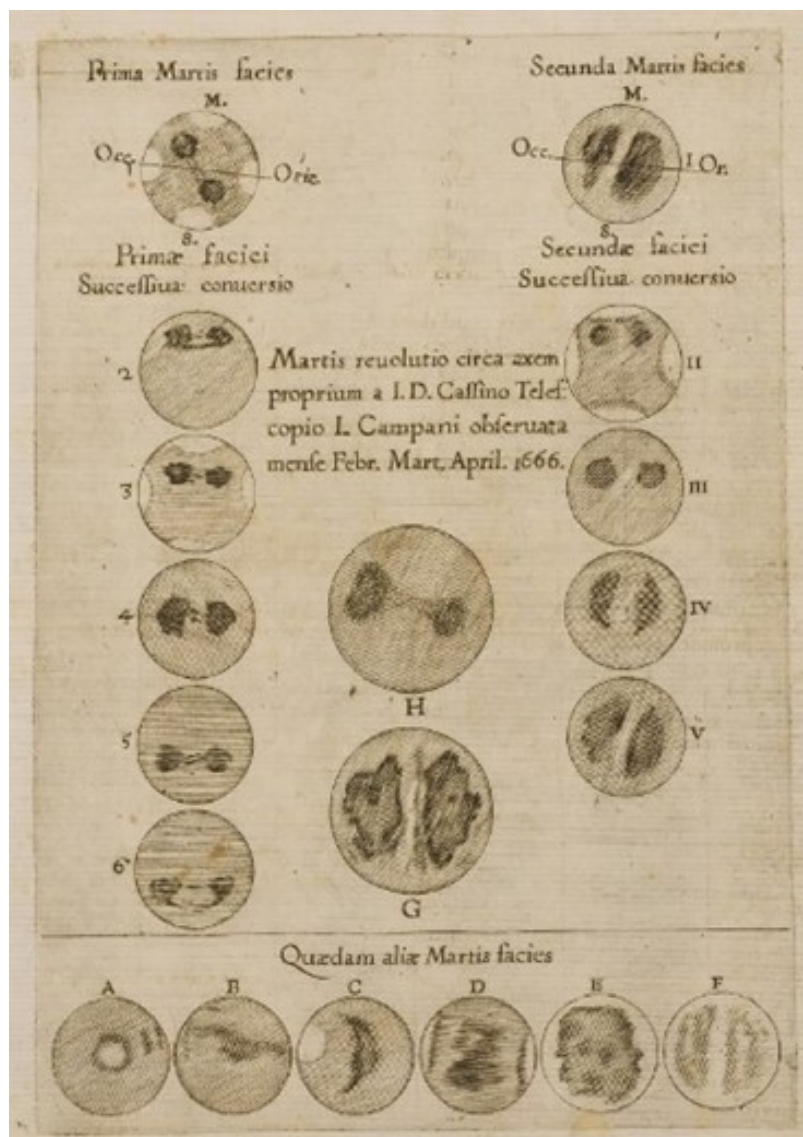 Prima Martis facies
M.
Occ.
1
Orie.
S.
Primæ faciei
Successiua conuersio
2
3
4
5
6
Secunda Martis facies
M.
Occ.
I
Or.
S.
Secundæ faciei
Successiua conuersio
II
III
IV
V
Martis reuolutio circa axem
proprium a I. D. Cassino Teles
copio I. Campani obseruata
mense Febr. Mart. April. 1666.
H
G
Quædam aliæ Martis facies
A B C D E F